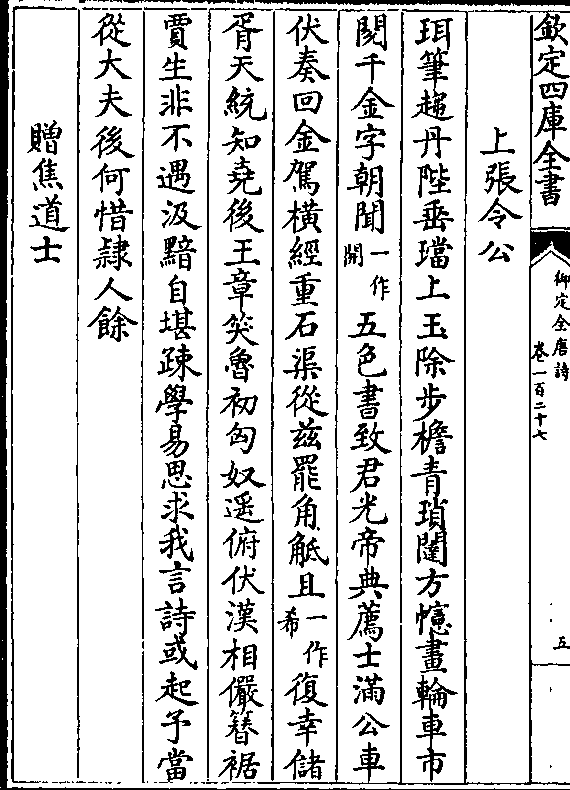 欽定四庫全書
御定全唐詩
卷一百二十七
五
上張令公
珥筆趨丹陛垂璫上玉除步檐青瑣闥方幰畫輪車市
閱千金字朝聞一作開五色書致君光帝典薦士滿公車
伏奏回金駕橫經重石渠從兹罷角觝且一作希復幸儲
胥天統知堯後王章笑魯初匈奴遥俯伏漢相儼簪裾
賈生非不遇汲黯自堪疎學易思求我言詩或起予當
從大夫後何惜隷人餘
贈焦道士